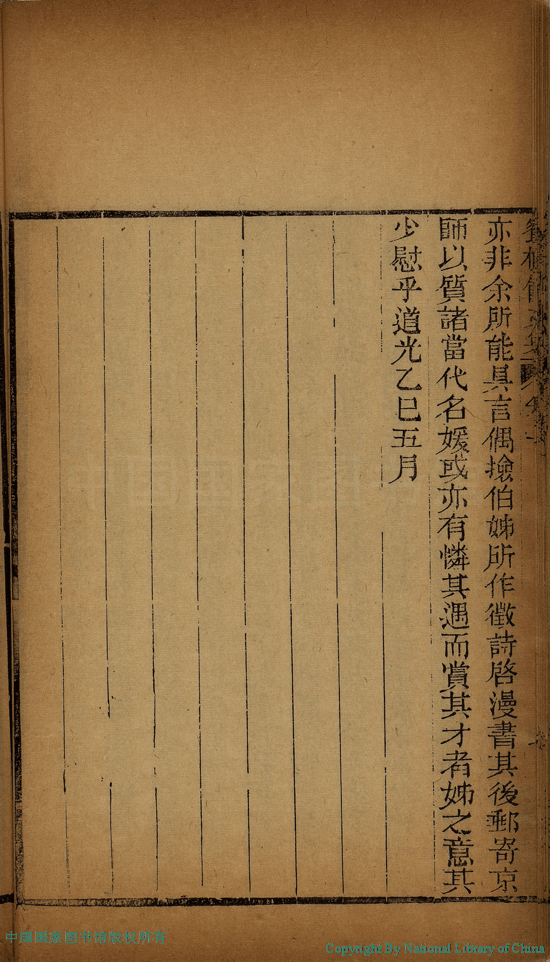 亦非余所能具言偶撿伯姊所作徵詩啓漫書其後郵寄京
師以質諸當代名媛或亦有憐其遇而賞其才者姊之意其
少慰乎道光乙巳五月
中国国家图书馆版权所有
Copyright By National Library of China